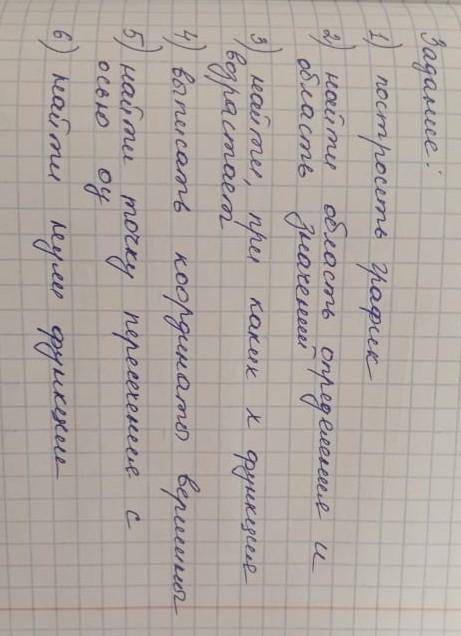 Задание:
1) построить график
2) найти область определения и
область значений
3) найти, при каких x функция
возрастает
4) выписать координаты вершины
5) найти точку пересечения с
осью oy
6) найти нули функции